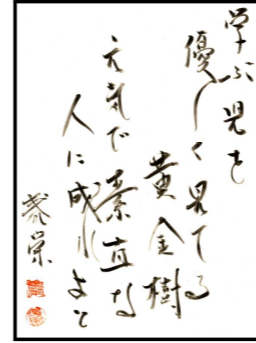 学ぶ児を
優しく見てる
黄金樹
元気で素直な
人に成れよと